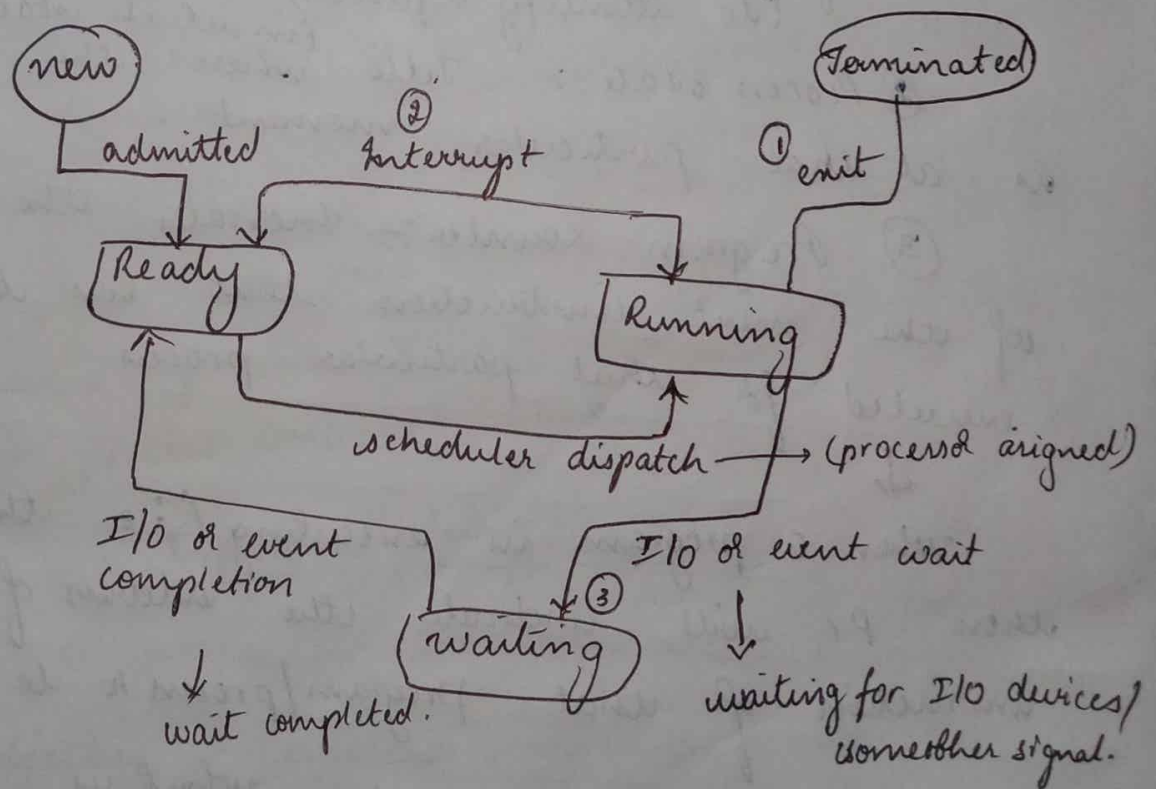 new
Terminated
②
Interrupt
admitted
①
exit
Ready
Running
scheduler dispatch → (processor asigned)
I/O or event
completion
I/O or event wait
③
waiting
↓
wait completed.
↓
waiting for I/O devices/
someother signal.